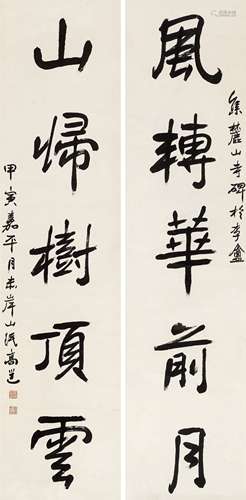 集麓山寺碑於李盦
風轉華前月
山歸樹頂雲
甲寅嘉平月末岸山民高邕